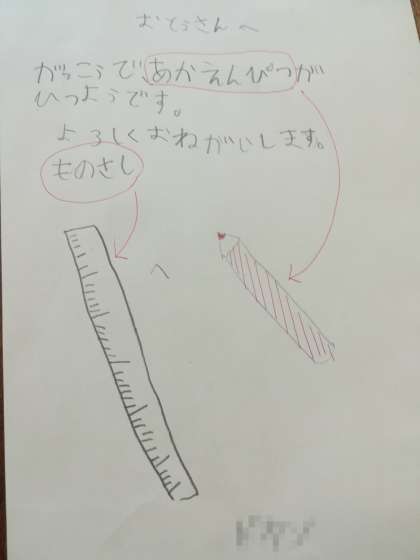 おとうさんへ
がっこうであかえんぴつが
ひつようです。
よろしくおねがいします。
ものさし
へ